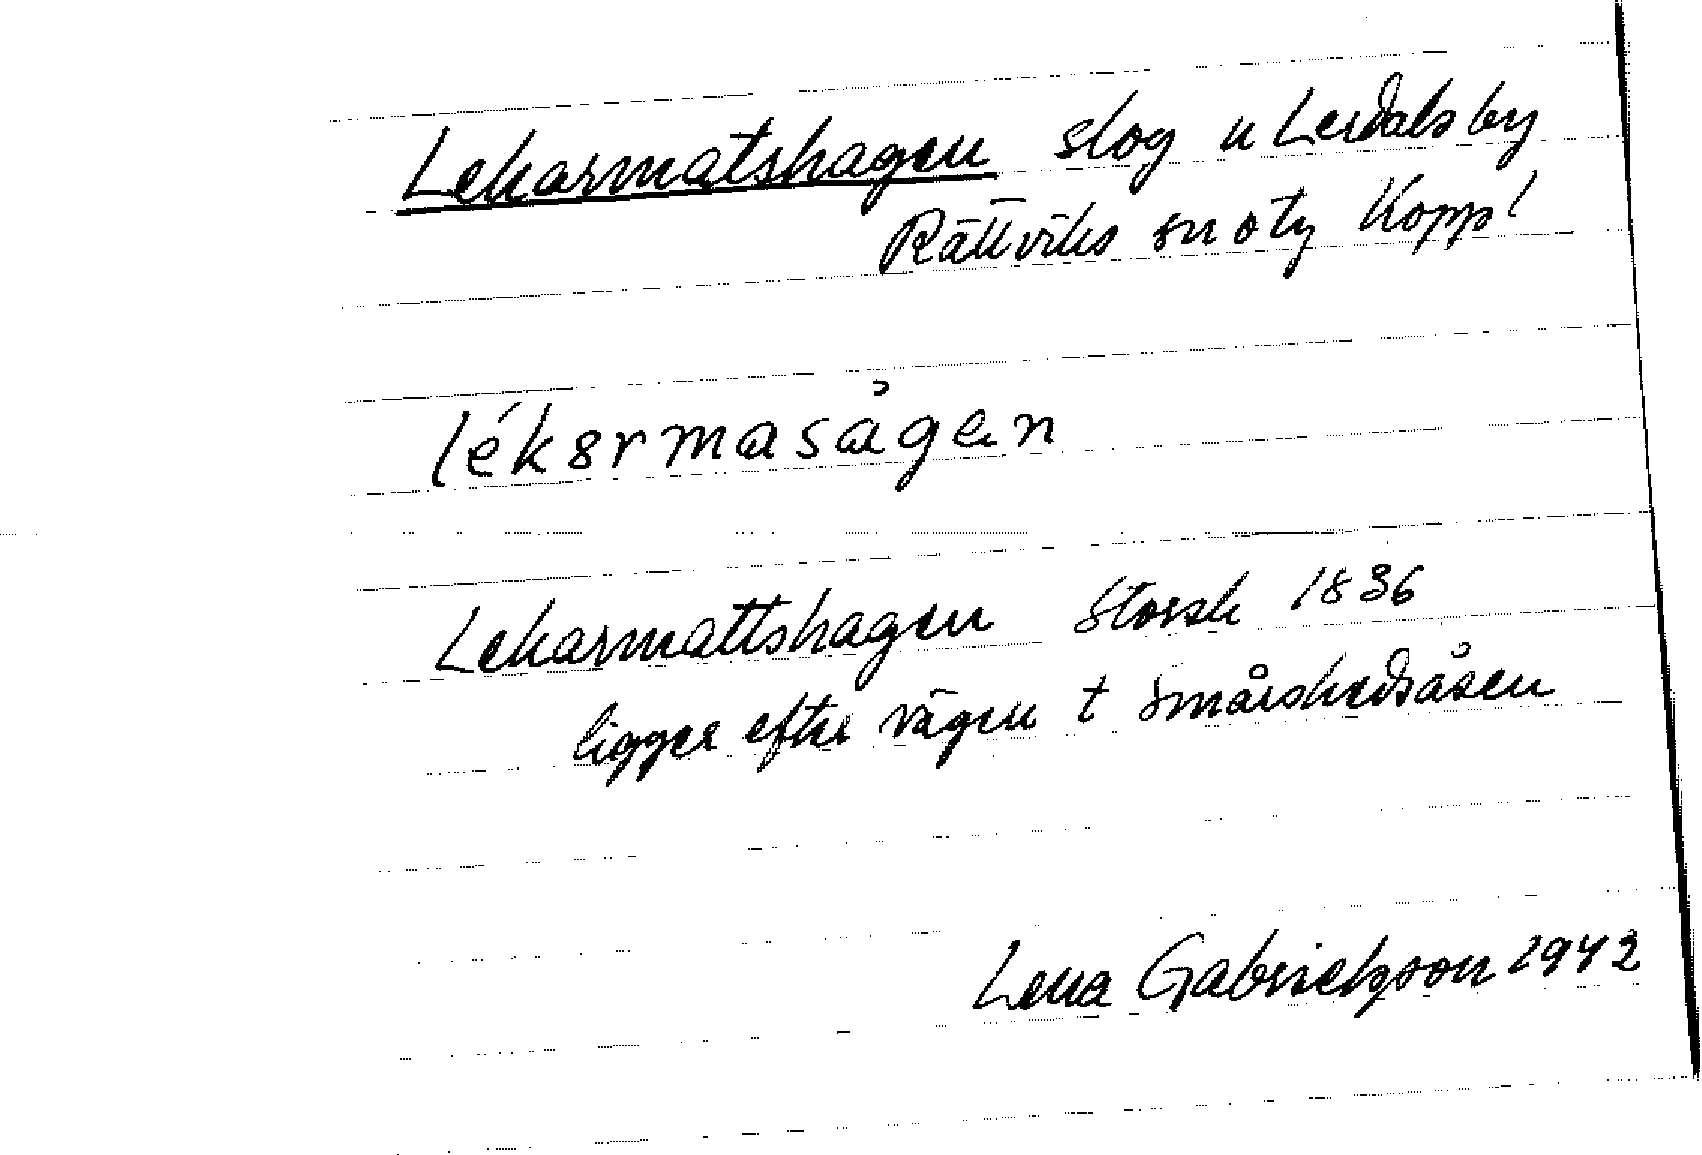 Lekarmatshagen skog u Lerdals by
Rättviks sn o tg Kopp l
lékərmasågen
Lekarmattshagen Storsk 1836
ligger efter vägen t Smårshedsåsen
Lena Gabrielsson 1942